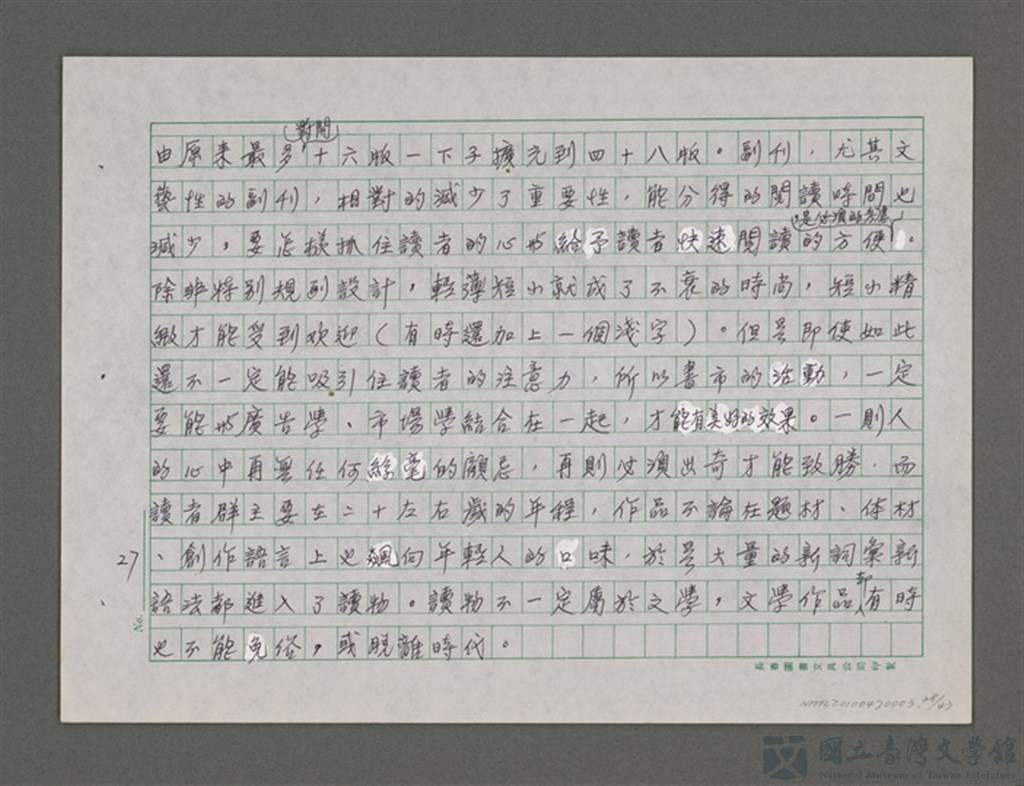 由原來最多對開十六版一下子擴充到四十八版。副刊,尤其文
藝性的副刊,相對的減少了重要性,能分得的閱讀時間也
減少,要怎樣抓住讀者的心與給予讀者快速閱讀的方便是必須的考慮。
除非特別規劃設計,輕薄短小就成了不衰的時尚,短小精
緻才能受到欢迎(有時還加上一個淺字)。但是即使如此
還不一定能吸引住讀者的注意力,所以書市的活動,一定
要能與廣告學、市場學結合在一起,才能有美好的效果。一則人
的心中再無任何絲毫的顧忌,再則出奇才能致勝,而
讀者群主要在二十左右歲的年程,作品不論在題材、体材
、創作語言上也飄向年輕人的口味,於是大量的新詞彙新
語法都進入了讀物。讀物不一定屬於文學,文學作品却有時
也不能免俗,或脫離時代。
27
No.
長春圖書文具公司印製
NMTL20100470003.28/43
國立臺灣文學館
National Museum of Taiwan Literature